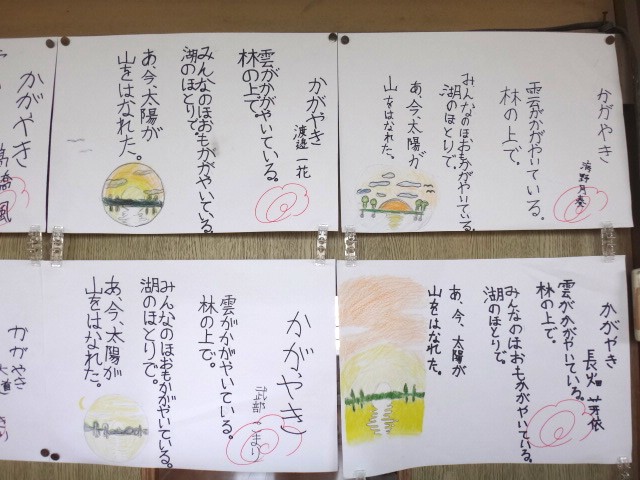 かがやき
渡邉 一花
雲がかがやいている。
林の上で。
みんなのほおもかがやいている。
湖のほとりで。
あ、今、太陽が
山をはなれた。
かがやき
海野月奏
雲がかがやいている。
林の上で。
みんなのほおもかがやいている。
湖のほとりで。
あ、今、太陽が
山をはなれた。
かがやき
髙橋 風
かがやき
武部 こまり
雲がかがやいている。
林の上で。
みんなのほおもかがやいている。
湖のほとりで。
あ、今、太陽が
山をはなれた。
かがやき
長畑 芽依
雲がかがやいている。
林の上で。
みんなのほおもかがやいている。
湖のほとりで。
あ、今、太陽が
山をはなれた。
かがやき